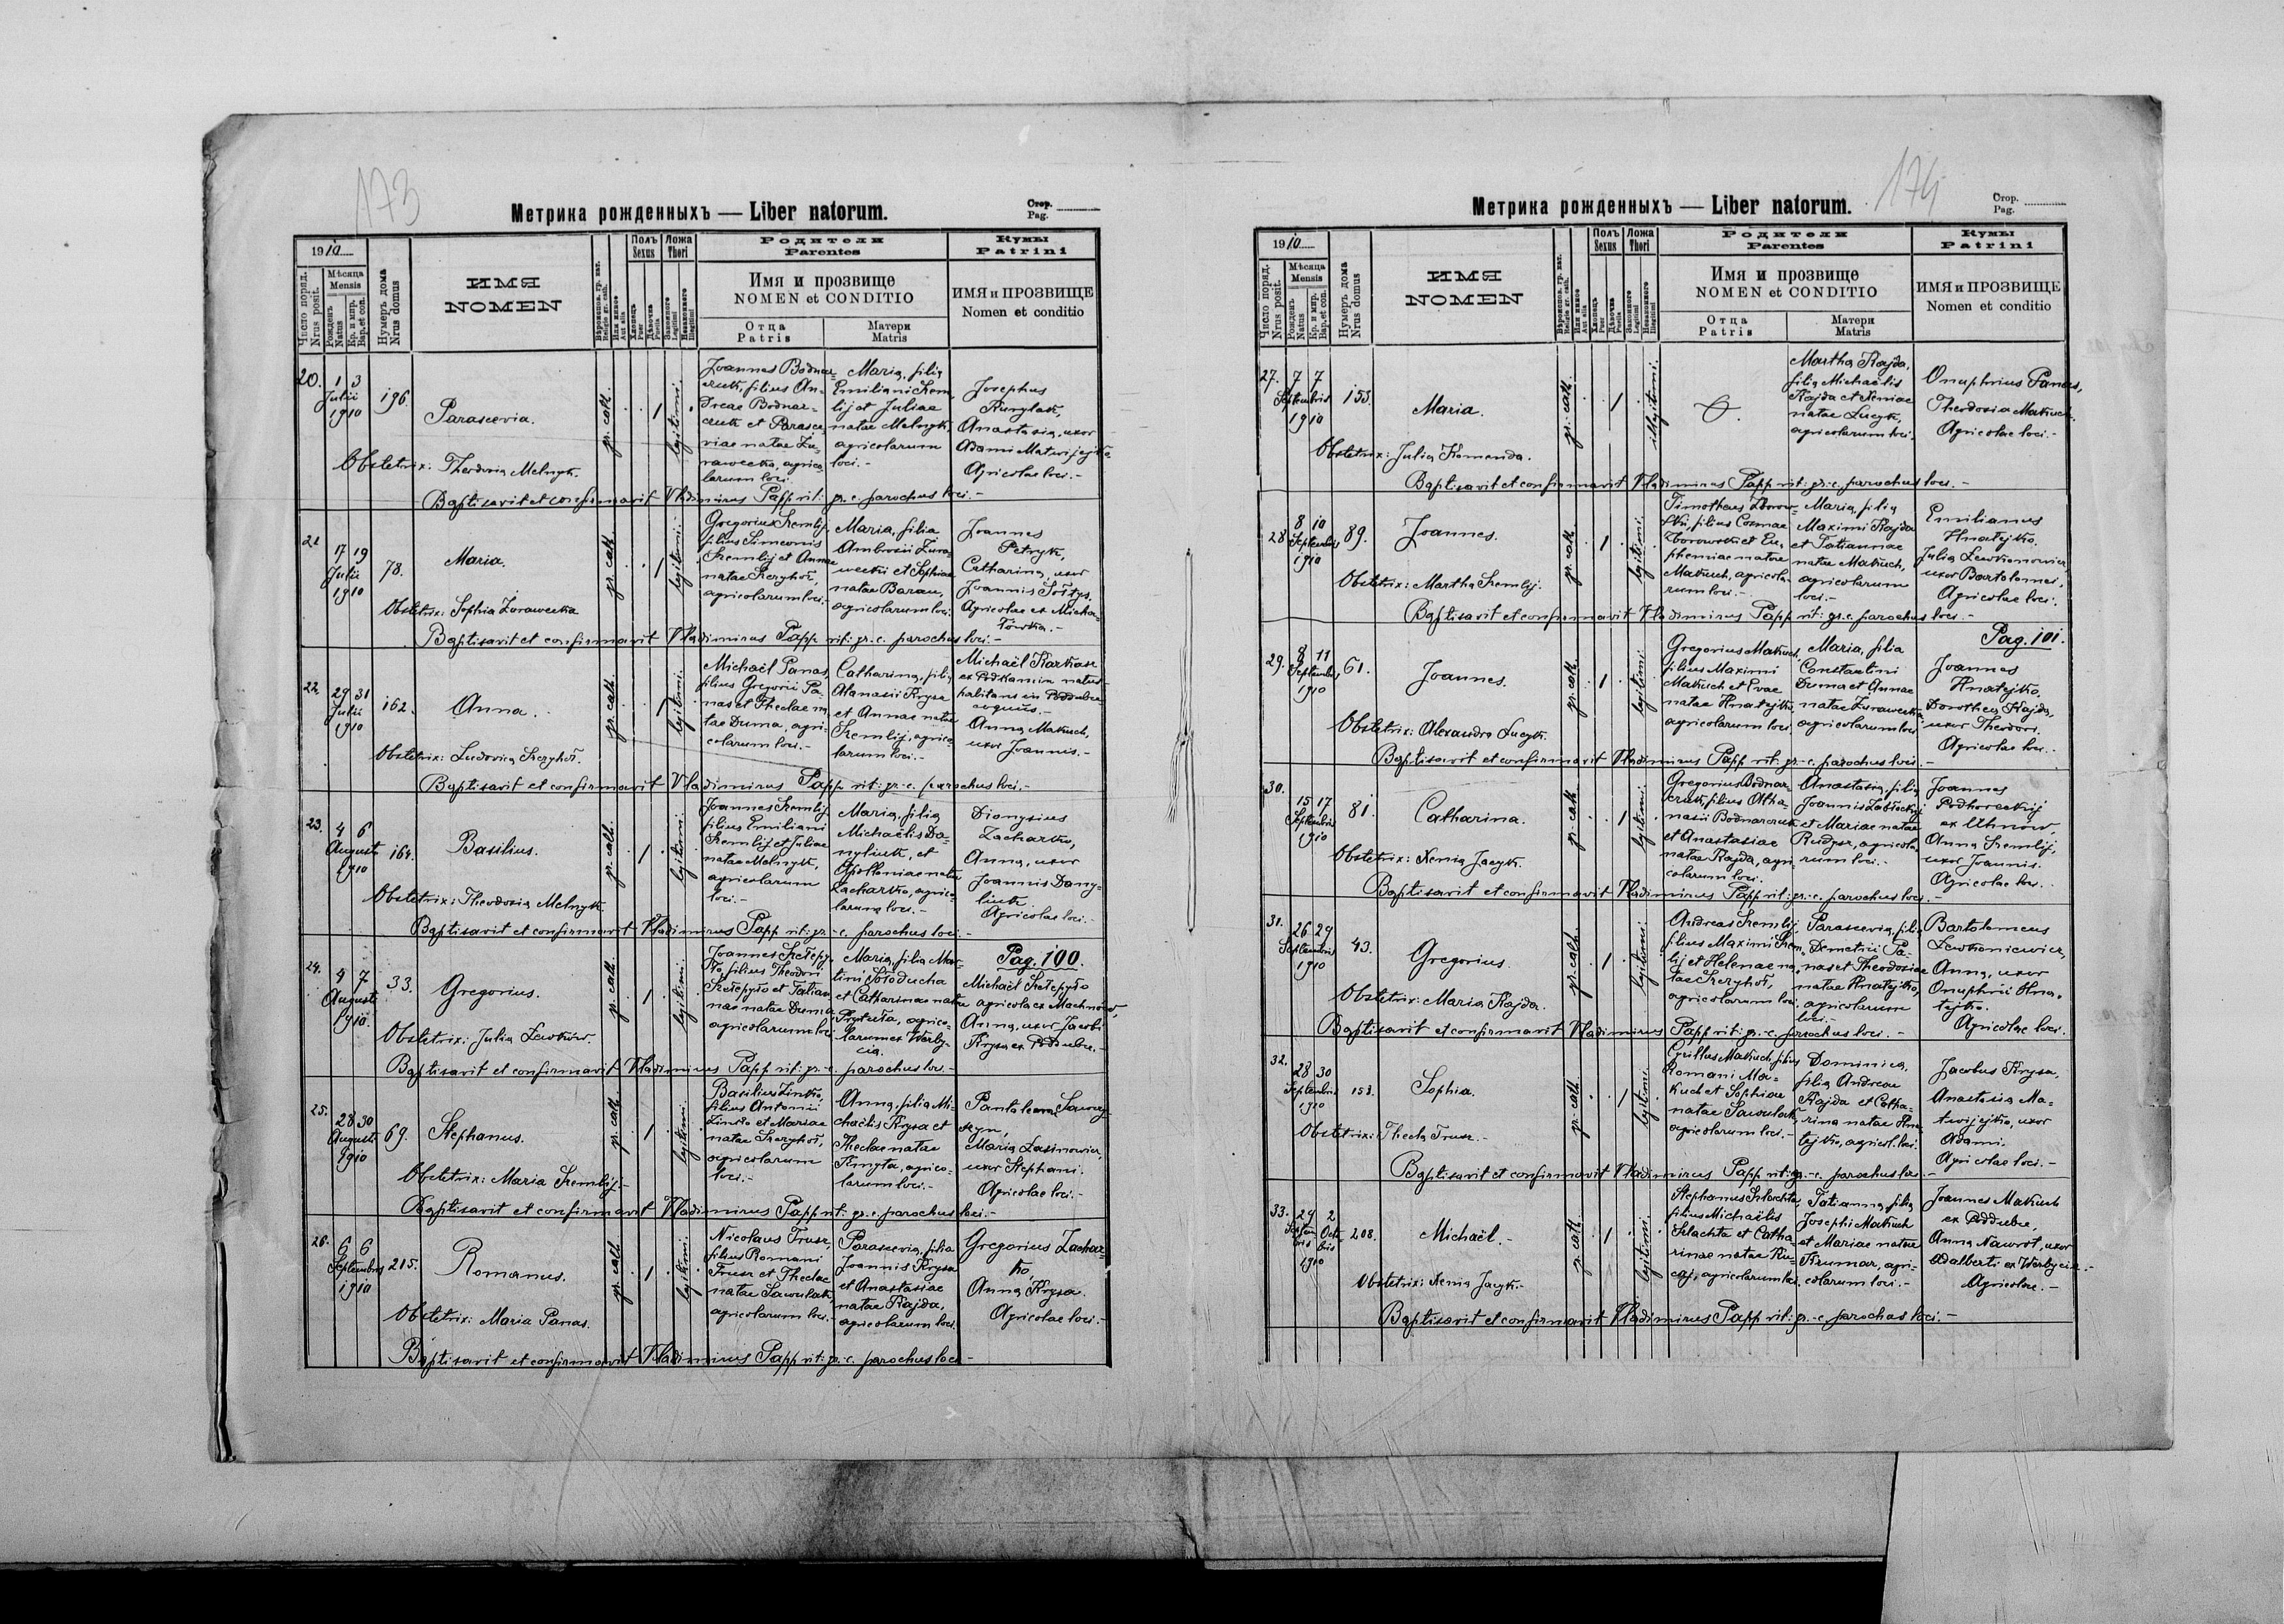 173
Метрика рожденныхъ — Liber natorum.
Стор.
Pag.
1910
Число поряд.
Nrus posit.
Мѣсяца
Mensis
Рожденъ
Natus
Кр. и мир.
Bap. et con.
Нумеръ дома
Nrus domus
ИМЯ
NOMEN
Вѣроиспов. гр. кат.
Religio gr. cath.
Или инное
Aut alia
Полъ
Sexus
Хлопецъ
Puer
Дѣвочка
Puella
Ложа
Thori
Законного
Legitimi
Незаконного
Illegitimi
Родители
Parentes
Имя и прозвище
NOMEN et CONDITIO
Отца
Patris
Матери
Matris
Кумы
Patrini
ИМЯ и ПРОЗВИЩЕ
Nomen et conditio
20.
1 3
Julii
1910
196.
Parascevia.
gr. cath.
1
legitimi.
Joannes Bodnar-
czuk, filius An-
dreae Bodnar-
czuk et Parasce
viae natae Żu-
rawecka, agrico
larum loci.
Maria, filia
Emiliani Szem
lij et Juliae
natae Melnyk,
agricolarum
loci.-
Josephus
Kunylak,
Anastasia, uxor
Adami Matwijejko
Agricolae loci.-
Obstetrix: Theodosia Melnyk.
Baptisavit et confirmavit Vladimirus Papp rit: gr.-c. parochus loci.-
21
17 19
Julii
1910
78.
Maria.
gr. cath.
1
legitimi.
Gregorius Szemlij,
filius Simeonis
Szemlij et Annae
natae Szczyhoł,
agricolarum loci.-
Maria, filia
Ambrosii Żura-
wecki et Sophiae
natae Baran,
agricolarum loci.
Joannes
Petryk,
Catharina, uxor
Joannis Sołtys.
Agricolae ex Micha-
łówka.-
Obstetrix: Sophia Żurawecka
Baptisavit et confirmavit Vladimirus Papp rit: gr.-c. parochus loci.-
22.
29 31
Julii
1910
162.
Anna.
gr. cath.
1
legitimi.
Michaël Panas,
filius Gregorii Pa-
nas et Theclae na
tae Duma, agri-
colarum loci.-
Catharina, filia
Atanasii Krysa
et Annae natae
Szemlij, agrico-
larum loci.-
Michaël Karkasz
ex Podkamien natus
habitans in Poddubce
Anna Makuch,
uxor Joannis.-
Obstetrix: Ludovica Szczyhoł.
Baptisavit et confirmavit Vladimirus Papp rit: gr.-c. parochus loci.-
23.
4 6
Augusti
1910
164.
Basilius.
gr. cath.
1
legitimi.
Joannes Szemlij
filius Emiliani
Szemlij et Juliae
natae Melnyk,
agricolarum
loci.-
Maria, filia
Michaëlis Da-
nyliuk, et
Apolloniae natae
Zacharko, agrico-
larum loci.-
Dionysius
Zacharko,
Anna, uxor
Joannis Dany-
liuk.
Agricolae loci.-
Obstetrix: Theodosia Melnyk.
Baptisavit et confirmavit Vladimirus Papp rit: gr.-c. parochus loci.-
24.
4 7
Augusti
1910.
33.
Gregorius.
gr. cath.
1
legitimi.
Joannes Szełepy-
ło, filius Theodori
Szełepyło et Tatian
nae natae Duma,
agricolarum loci
Maria, filia Mar-
tini Sołoducha
et Catharinae natae
Prytuła, agrico-
larum ex Werby-
cia.
Pag. 100.
Michaël Szełepyło
agricola ex Machnów,
Anna, uxor Jacobi
Krysa ex Poddubce.-
Obstetrix: Julia Lewków.
Baptisavit et confirmavit Vladimirus Papp rit: gr.-c. parochus loci.-
25.
28 30
Augusti
1910
69.
Stephanus.
gr. cath.
1
legitimi.
Basilius Zinko,
filius Antonii
Zinko et Mariae
natae Szczyhoł,
agricolarum
loci.-
Anna, filia Mi-
chaëlis Krysa et
Theclae natae
Kmyta, agrico-
larum loci.-
Maria Lasznowicz,
uxor Stephani.
Agricolae loci.-
Obstetrix: Maria Szemlij.-
Baptisavit et confirmavit Vladimirus Papp rit: gr.-c. parochus loci.-
26.
6 6
Septembris
1910
215.
Romanus.
gr. cath.
1
legitimi.
Nicolaus Trusz,
filius Romani
Trusz et Theclae
natae Sawulak,
agricolarum loci.-
Parascevia, filia
Joannis Krysa
et Anastasiae
natae Kajda,
agricolarum loci.
Gregorius Zachar-
ko,
Anna Krysa.
Agricolae loci.-
Obstetrix: Maria Panas.
Baptisavit et confirmavit Vladimirus Papp rit: gr.-c. parochus loci.-
174
Метрика рожденныхъ — Liber natorum.
Стор.
Pag.
1910
Число поряд.
Nrus posit.
Мѣсяца
Mensis
Рожденъ
Natus
Кр. и мир.
Bap. et con.
Нумеръ дома
Nrus domus
ИМЯ
NOMEN
Вѣроиспов. гр. кат.
Religio gr. cath.
Или инное
Aut alia
Полъ
Sexus
Хлопецъ
Puer
Дѣвочка
Puella
Ложа
Thori
Законного
Legitimi
Незаконного
Illegitimi
Родители
Parentes
Имя и прозвище
NOMEN et CONDITIO
Отца
Patris
Матери
Matris
Кумы
Patrini
ИМЯ и ПРОЗВИЩЕ
Nomen et conditio
27.
7 7
Septembris
1910
155.
Maria.
gr. cath.
1
illegitimi.
Martha Kajda,
filia Michaëlis
Kajda et Xeniae
natae Lucyk,
agricolarum loci.
Onuphrius Panas,
Theodosia Makuch.
Agricolae loci.-
Obstetrix: Julia Komenda.
Baptisavit et confirmavit Vladimirus Papp rit: gr.-c. parochus loci.-
28
8 10
Septembris
1910
89.
Joannes.
gr. cath.
1
legitimi.
Timotheus Zborow-
ski, filius Cosmae
Zborowski et Eu-
phemiae natae
Makuch, agricola-
rum loci.-
Maria, filia
Maximi Kajda
et Tatiannae
natae Makuch,
agricolarum
loci.-
Emilianus
Hnatejko.
Julia Lewkonowicz
uxor Bartolomei,
Agricolae loci.
Obstetrix: Martha Szemlij.
Baptisavit et confirmavit Vladimirus Papp rit: gr.-c. parochus loci.-
Pag. 101.
29.
8 11
Septembris
1910
61.
Joannes.
gr. cath.
1
legitimi.
Gregorius Makuch,
filius Maximi
Makuch et Evae
natae Hnatejko,
agricolarum loci
Maria, filia
Constantini
Duma et Annae
natae Żurawecka,
agricolarum loci
Joannes
Hnatejko.
Dorothea Kajda,
uxor Theodori.
Agricolae loci.
Obstetrix: Alexandra Lucyk.
Baptisavit et confirmavit Vladimirus Papp rit: gr.-c. parochus loci.-
30.
15 17
Septembris
1910
81.
Catharina.
gr. cath
1
legitimi.
Gregorius Bodnar-
czuk, filius Atha-
nasii Bodnarczuk
et Anastasiae
natae Kajda, agri-
colarum loci.
Anastasia, filia
Joannis Zabłockij
et Mariae natae
Rudysz, agricola-
rum loci.-
Joannes
Podhoreckij
ex Uhnow,
Anna Szemlij,
uxor Joannis.
Agricolae loci.
Obstetrix: Xenia Jacyk.
Baptisavit et confirmavit Vladimirus Papp rit: gr.-c. parochus loci.-
31.
26 29
Septembris
1910
43.
Gregorius.
gr. cath.
1
legitimi.
Andreas Szemlij,
filius Maximi Szem-
lij et Helenae na-
tae Szczyhoł,
agricolarum loci
Parascevia, filia
Demetrii Pa-
nas et Theodosiae
natae Hnatejko,
agricolarum
loci.-
Bartolomeus
Lewkoniewicz,
Anna, uxor
Onuphrii Hna-
tejko.
Agricolae loci.
Obstetrix: Maria Kajda.
Baptisavit et confirmavit Vladimirus Papp rit: gr.-c. parochus loci.-
32.
28 30
Septembris
1910
153.
Sophia.
gr. cath.
1
legitimi.
Cyrillus Makuch, filius
Romani Ma-
kuch et Sophiae
natae Sawulak,
agricolarum loci.-
Dominica,
filia Andreae
Kajda et Catha-
rina natae Hna-
tejko, agricol. loci.
Jacobus Krysa,
Anastasia Ma-
twijejko, uxor
Adami.
Agricolae loci.-
Obstetrix: Thecla Trusz.-
Baptisavit et confirmavit Vladimirus Papp rit: gr.-c. parochus loci.-
33.
29 2
Septem Octo
bris bris
1910
208.
Michaël.-
gr. cath.
1
legitimi.
Stephanus Szlachta,
filius Michaëlis
Szlachta et Catha-
rinae natae Ku-
caj, agricolarum loci.
Tatianna, filia
Josephi Makuch
et Mariae natae
Krumar, agri-
colarum loci.-
Joannes Makuch
ex Poddubce,
Anna Nawrot, uxor
Adalberti ex Werbycia.-
Agricolae.-
Obstetrix: Xenia Jacyk.-
Baptisavit et confirmavit Vladimirus Papp rit: gr.-c. parochus loci.-